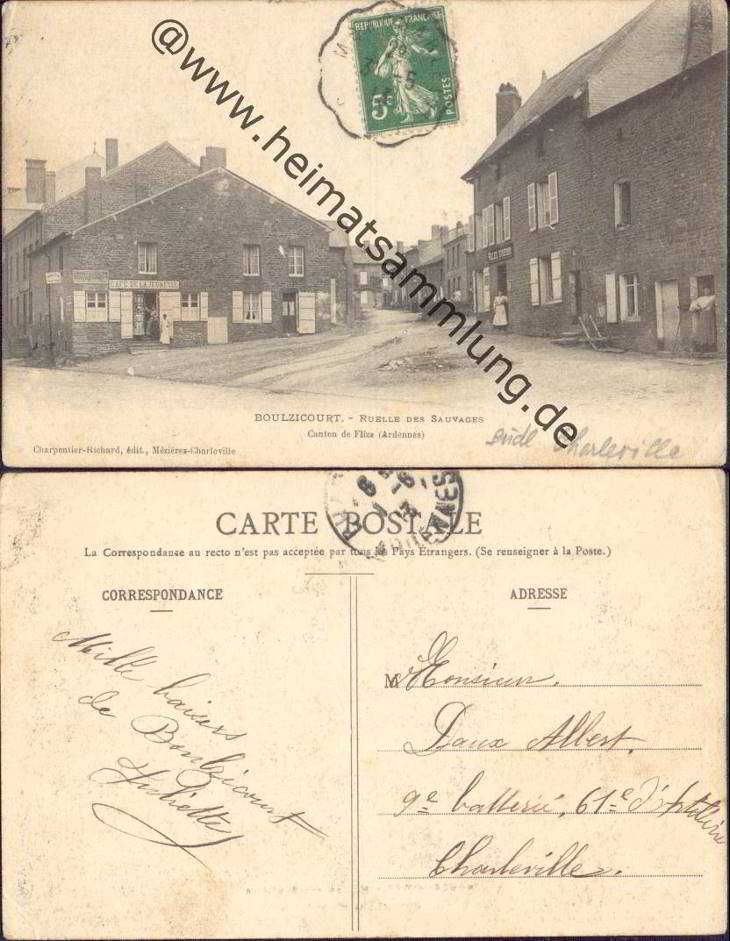 REPUBLIQUE FRANÇAISE
5c POSTES
@www.heimatsammlung.de
CAFÉ DE LA JEUNESSE
BOULZICOURT. - RUELLE DES SAUVAGES
Canton de Flize (Ardennes)
Charpentier-Richard, édit., Mézières-Charleville
südl Charleville
CARTE POSTALE
La Correspondance au recto n'est pas acceptée par tous les Pays Etrangers. (Se renseigner à la Poste.)
CORRESPONDANCE
Mille baisers
de Boulzicourt
Juliette
ADRESSE
M Monsieur.
Daux Albert.
9e batterie, 61e d'Artillerie
Charleville.